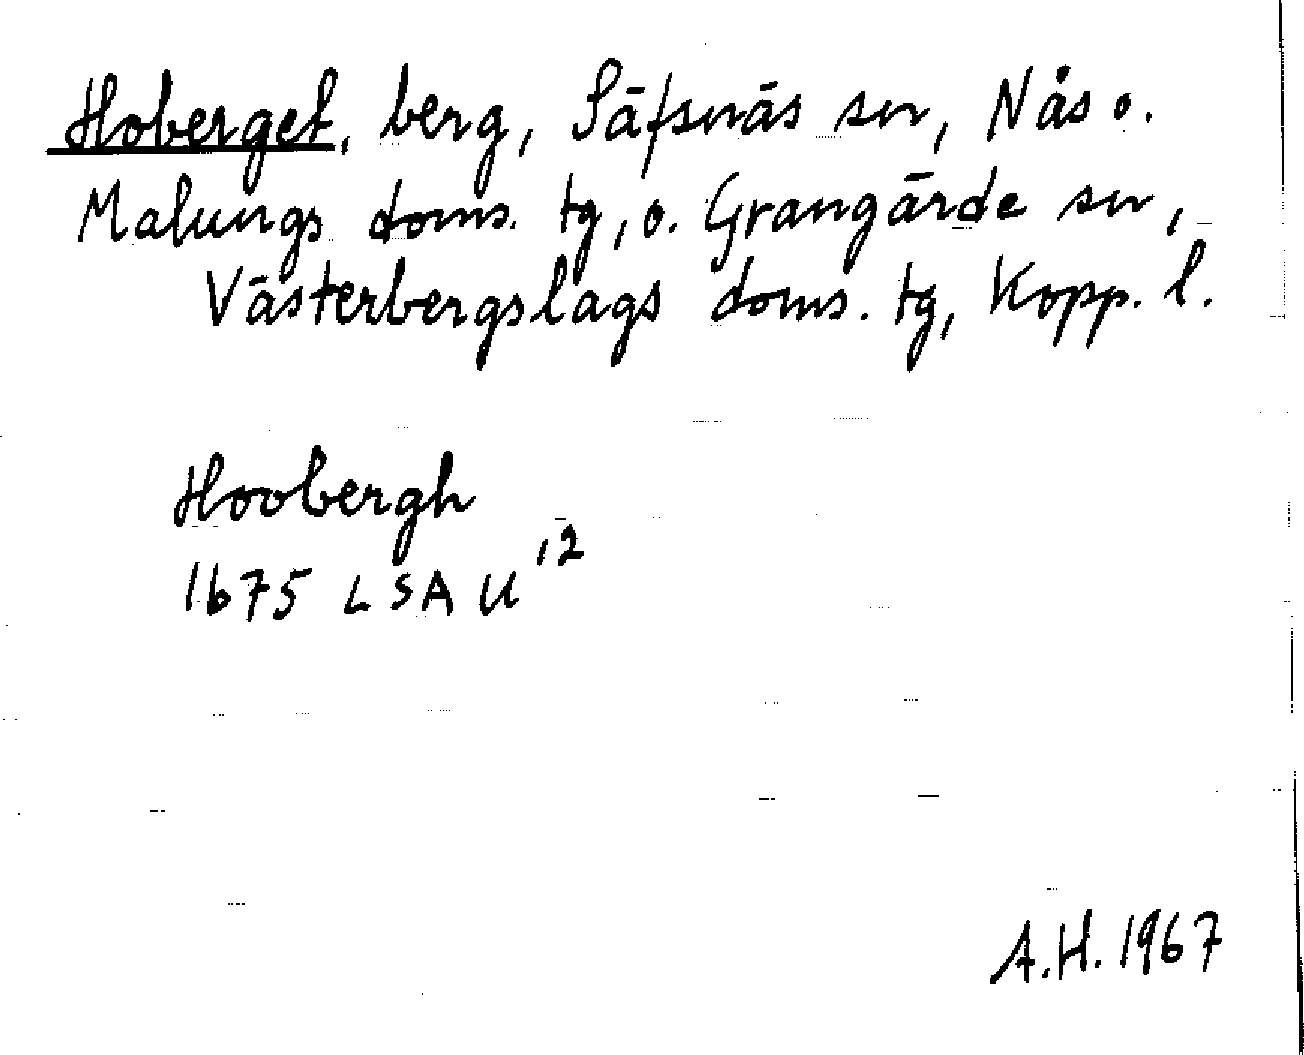 Hoberget, berg, Säfsnäs sn, Nås o.
Malungs doms. tg, o. Grangärde sn,
Västerbergslags doms. tg, Kopp. l.
Hoobergh
1675 LSA U12
A.H. 1967